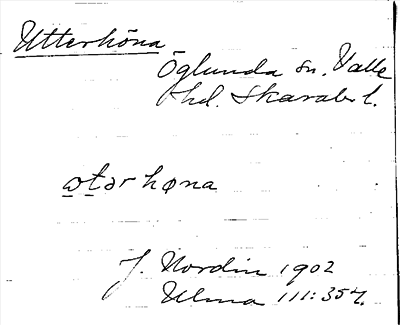 Utterhöna
Öglunda sn. Valle
hd. Skarab. l.
ɷtər høna
J. Nordin 1902
Ulma 111:357.